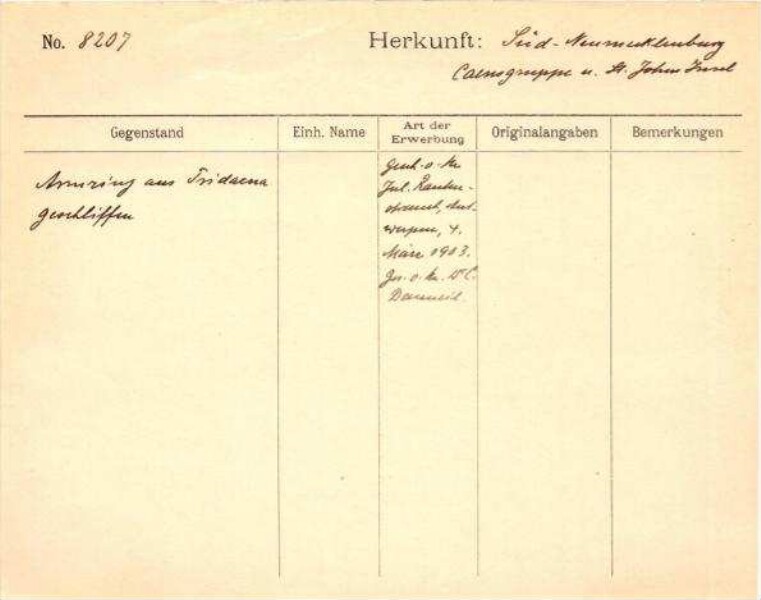 No. 8207
Herkunft: Süd-Neumecklenburg
Caensgruppe u. St. John Insel
Gegenstand
Einh. Name
Art der
Erwerbung
Originalangaben
Bemerkungen
Armring aus Tridacna
geschliffen
Gesch. v. Hr.
Jul. Rauten-
strauch, Ant-
werpen, 4.
März 1903.
Ges. v. Hr. Dr. C.